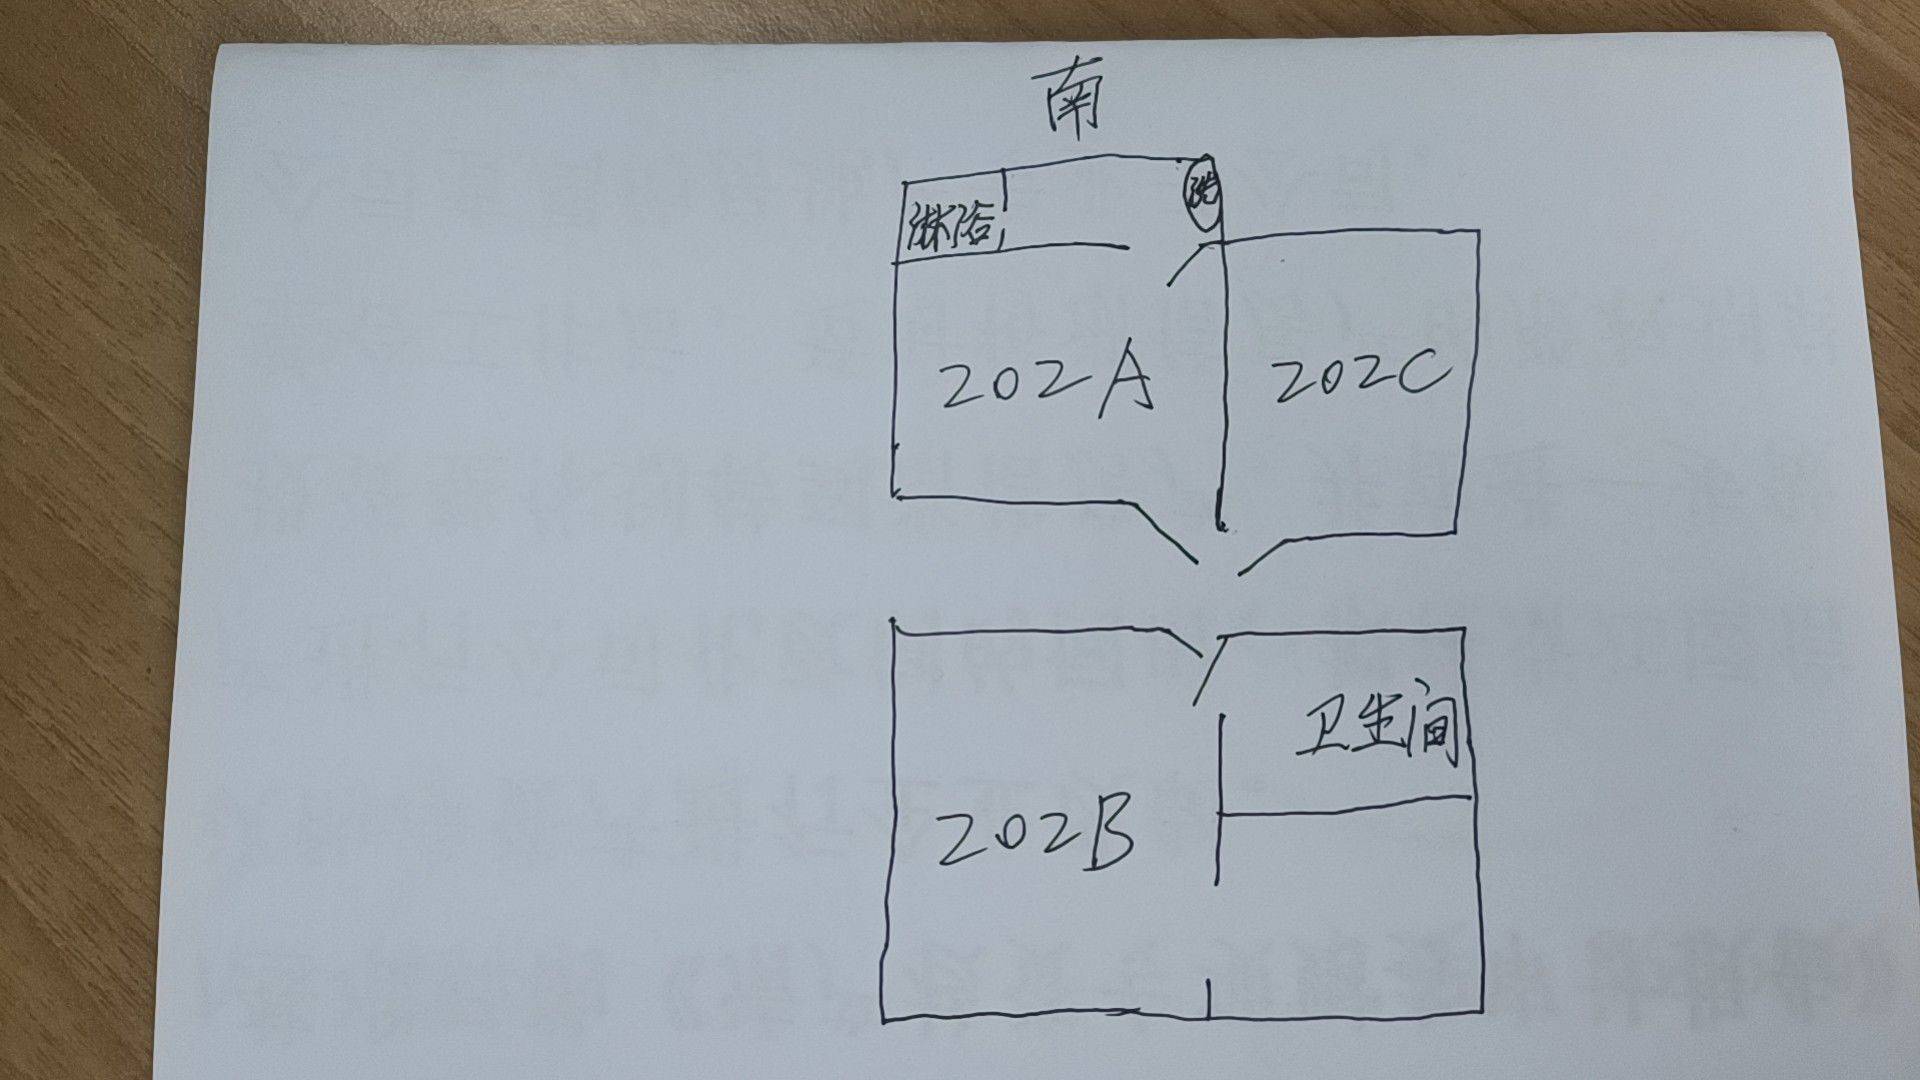 南
淋浴
202A
202C
卫生间
202B